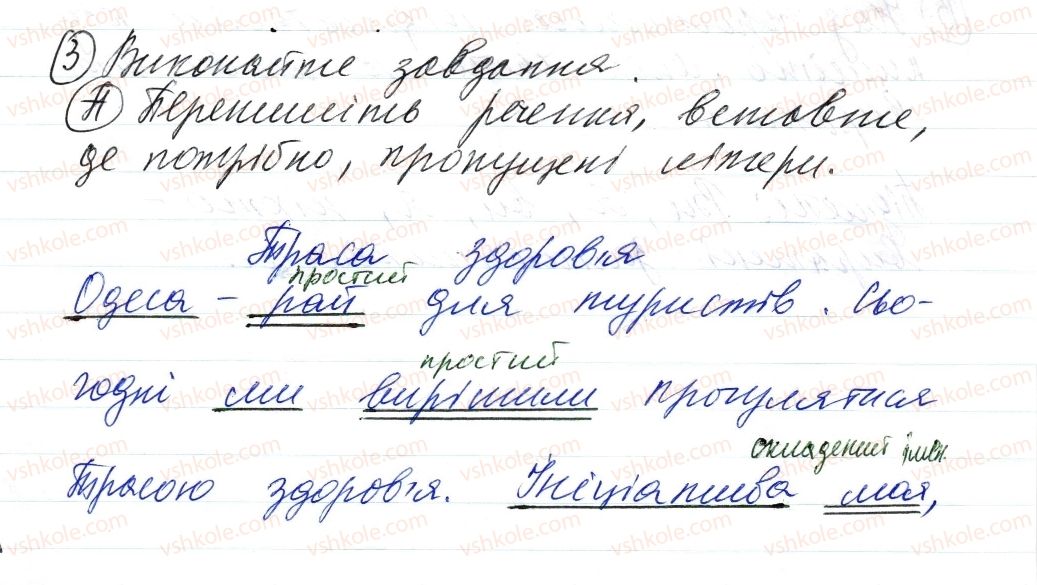 3 Виконайте завдання.
А Перепишіть речення, вставте,
де потрібно, пропущені літери.
Траса здоров'я
простий
Одеса – рай для туристів. Сьо-
простий
годні ми вирішили прогулятися
складений імен.
Трасою здоров'я. Ініціатива моя,